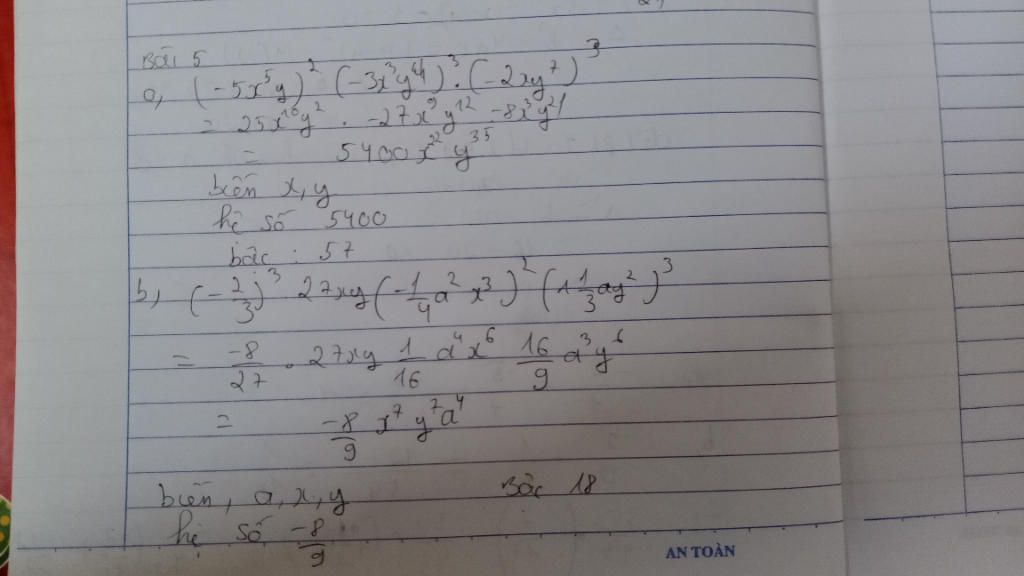 Bài 5
a, (-5x⁵y)² (-3x³y⁴)³ . (-2xy⁷)³
= 25x¹⁰y² . -27x⁹y¹² -8x³y²¹
= 5400x²²y³⁵
biến x,y
hệ số 5400
bậc : 57
b, (-2/3)³ 27xy (-1/4 a²x³)² (1 1/3 ay²)³
= -8/27 . 27xy 1/16 a⁴x⁶ 16/9 a³y⁶
= -8/9 x⁷y⁷a⁴
biến, a,x,y Bậc 18
hệ số -8/9
AN TOÀN